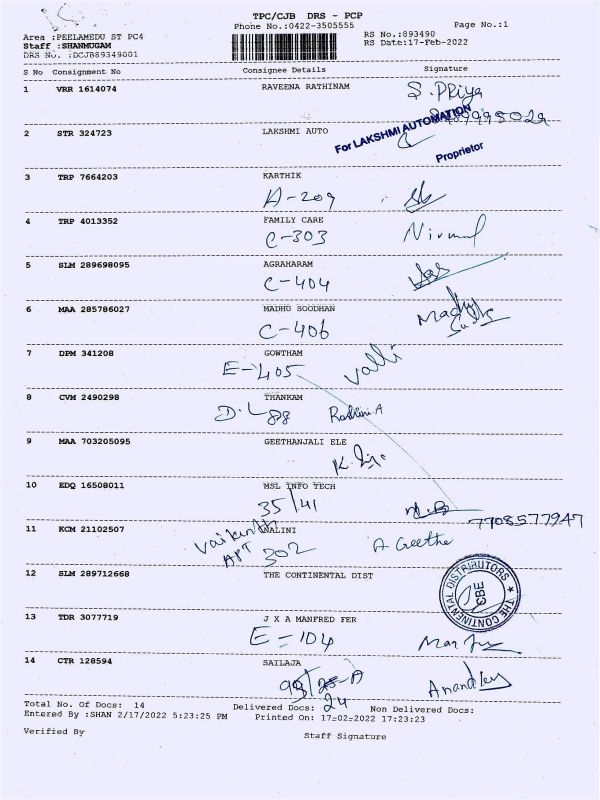 TPC/CJB DRS - PCP
Phone No.:0422-3505555
Page No.:1
Area :PEELAMEDU ST PC4
Staff :SHANMUGAM
DRS No. :DCJB89349001
RS No.:893490
RS Date:17-Feb-2022
S No Consignment No Consignee Details Signature
1 VRR 1614074 RAVEENA RATHINAM S. PRiya
2 STR 324723 LAKSHMI AUTO For LAKSHMI AUTOMATION
Proprietor
3 TRP 7664203 KARTHIK
A-209
4 TRP 4013352 FAMILY CARE
C-303 Nirmal
5 SLM 289698095 AGRAHARAM
C-404
6 MAA 285786027 MADHU SOODHAN
C-406 Madhu
7 DPM 341208 GOWTHAM
E-405 Valli
8 CVM 2490298 THANKAM
9 MAA 703205095 GEETHANJALI ELE
10 EDQ 16508011 MSL INFO TECH
35/41
7708577947
11 KCM 21102507 NALINI
APT 302 A Geetha
12 SLM 289712668 THE CONTINENTAL DIST
THE CONTINENTAL DISTRIBUTORS
CBE
13 TDR 3077719 J X A MANFRED FER
E-104
14 CTR 128594 SAILAJA
Total No. Of Docs: 14 Delivered Docs: Non Delivered Docs:
24
Entered By :SHAN 2/17/2022 5:23:25 PM Printed On: 17-02-2022 17:23:23
Verified By Staff Signature